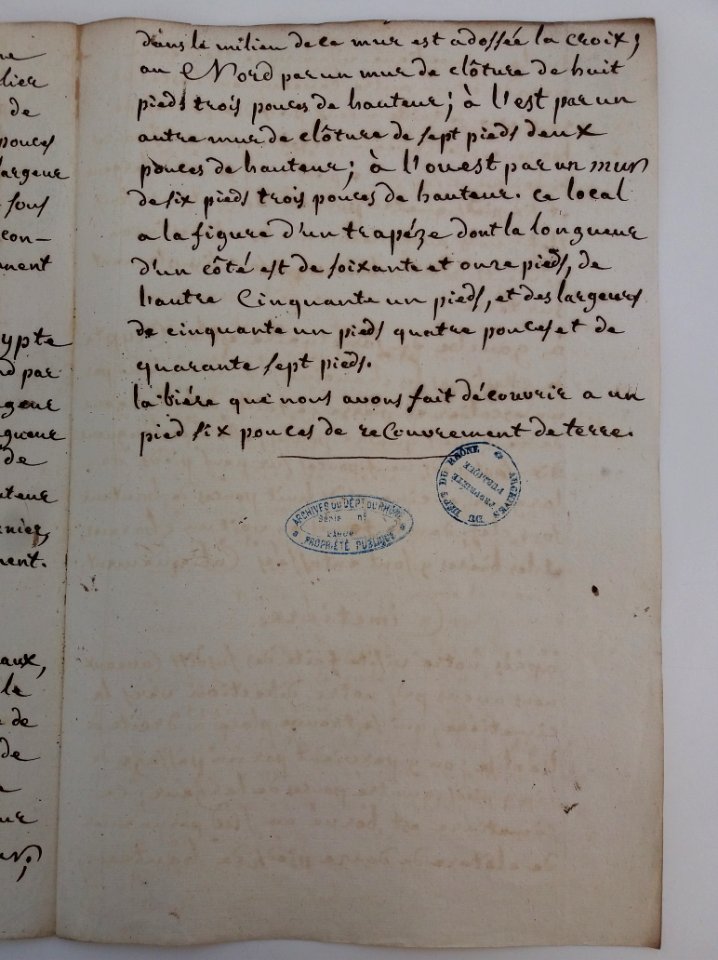 dans le milieu de ce mur est adossée la croix;
au Nord par un mur de clôture de huit
pieds trois pouces de hauteur; à l'est par un
autre mur de clôture de sept pieds deux
pouces de hauteur; à l'ouest par un mur
de six pieds trois pouces de hauteur. ce local
a la figure d'un trapéze dont la longueur
d'un côté est de soixante et onze pieds, de
lautre Cinquante un pieds, et des largeurs
de cinquante un pieds quatre pouces et de
quarante sept pieds.
la biére que nous avons fait découvrir a un
pied six pouces de recouvrement de terre.
ARCHIVES DU DÉPT DU RHÔNE
PROPRIÉTÉ PUBLIQUE
ARCHIVES DU DÉPT DU RHÔNE
Série
PROPRIÉTÉ PUBLIQUE
lier
de
pouces
largeur
sous
con-
ment
ypte
nd par
de
nier
ment.
aux,
le
de
de